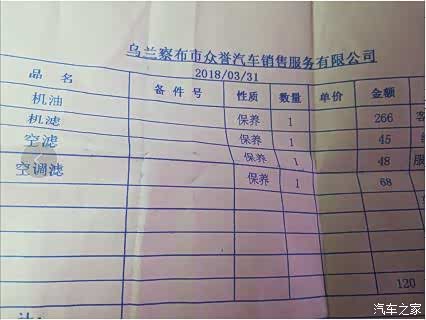 乌兰察布市众誉汽车销售服务有限公司
2018/03/31
品 名 备 件 号 性质 数量 单价 金额
机油 保养 1 266
机滤 保养 1 45
空滤 保养 1 48
空调滤 保养 1 68
120
汽车之家